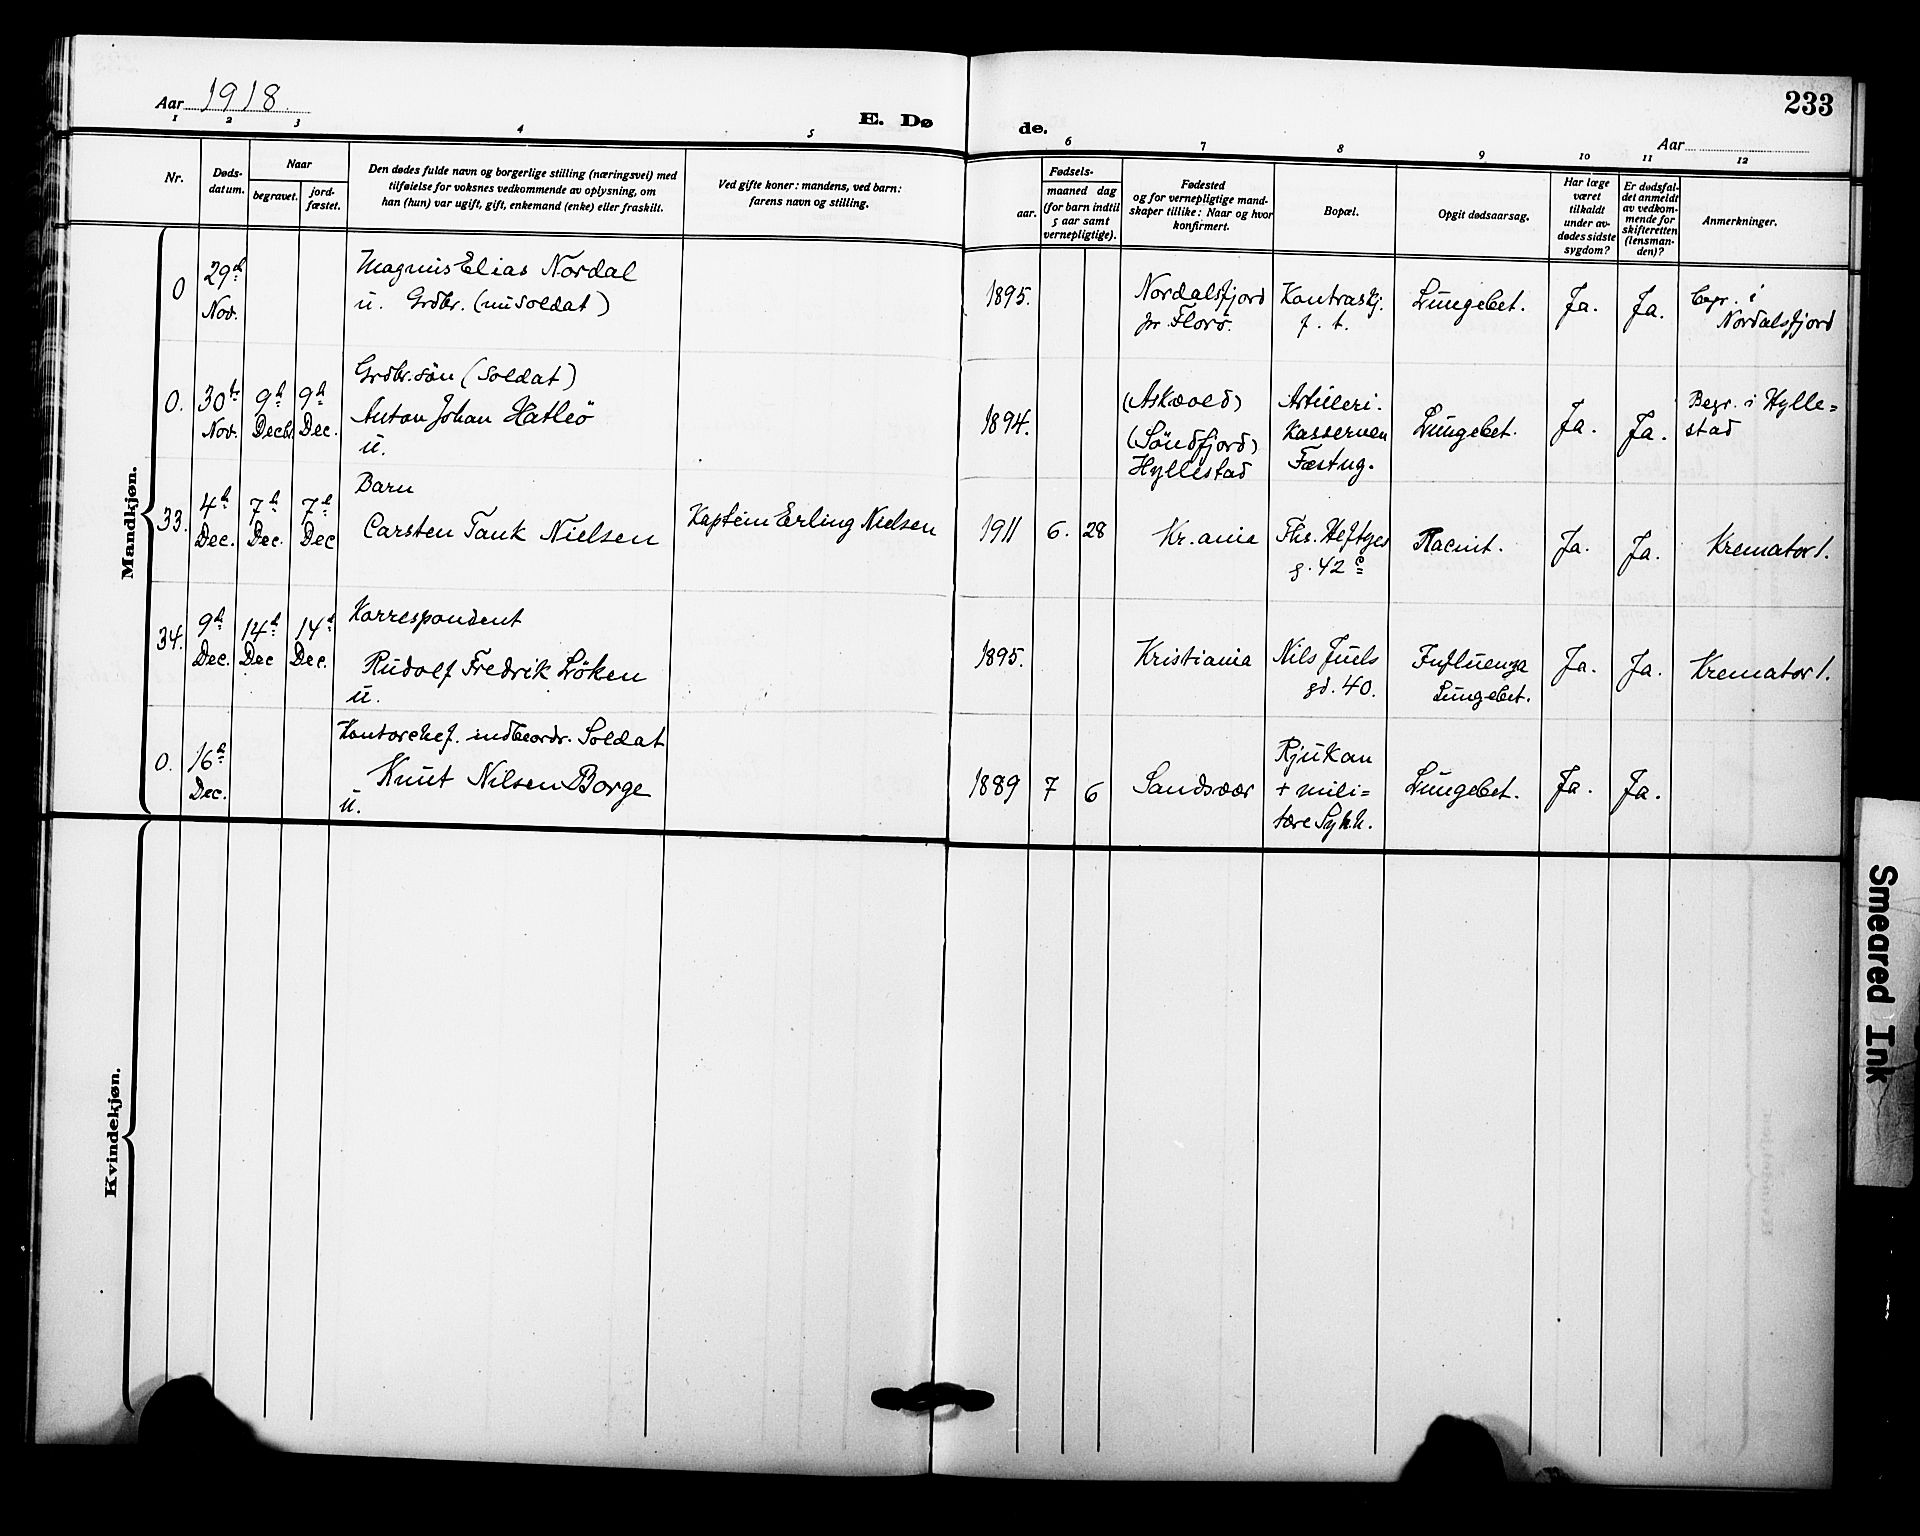 Aar 1918.
E. Dø
de.
Aar
233
1 2 3 4 5 6 7 8 9 10 11 12
Nr.
Døds-
datum.
Naar
begravet.
jord-
fæstet.
Den dødes fulde navn og borgerlige stilling (næringsvei) med
tilføielse for voksnes vedkommende av oplysning, om
han (hun) var ugift, gift, enkemand (enke) eller fraskilt.
Ved gifte koner: mandens, ved barn:
farens navn og stilling.
Fødsels-
aar.
maaned dag
(for barn indtil
5 aar samt
vernepligtige).
Fødested
og for vernepligtige mand-
skaper tillike: Naar og hvor
konfirmert.
Bopæl.
Opgit dødsaarsag.
Har læge
været
tilkaldt
under av-
dødes sidste
sygdom?
Er dødsfal-
det anmeldt
av vedkom-
mende for
skifteretten
(lensman-
den)?
Anmerkninger.
Mandkjøn.
0
29d
Nov.
Magnus Elias Nordal
u. Grdbr. (nu soldat)
1895.
Nordalsfjord
pr. Florø.
Kontraskj.
f. t.
Lungebet.
Ja.
Ja.
begr. i
Nordalsfjord
0.
30te
Nov.
9d
Decbr.
9d
Dec.
Grdbr.søn (soldat)
Anton Johan Hatleö
u.
1894.
(Askvold)
(Söndfjord)
Hyllestad
Artilleri.
Kassernen
Fæstng.
Lungebet.
Ja.
Ja.
Begr. i Hylle=
stad
33.
4d
Dec.
7d
Dec.
7d
Dec
Barn
Carsten Tank Nielsen
Kaptein Erling Nielsen
1911
6.
28
Kr.ania
Ths. Heftyes
g. 42 c
Racint.
Ja.
Ja.
Kremator 1.
34.
9d
Dec.
14d
Dec
14d
Dec.
Korrespondent
Rudolf Fredrik Löken
u.
1895.
Kristiania
Nils Juels
gd. 40.
Influenza
Lungebet.
Ja.
Ja.
Kremator 1.
0.
16d
Dec.
Kontorchef. indbeordr. Soldat
Knut Nilsen Borge
u.
1889
7
6
Sandsvær
Rjukan
+ mili=
tære Syk.h.
Lungebet.
Ja.
Ja.
Kvindekjøn.
Smeared Ink